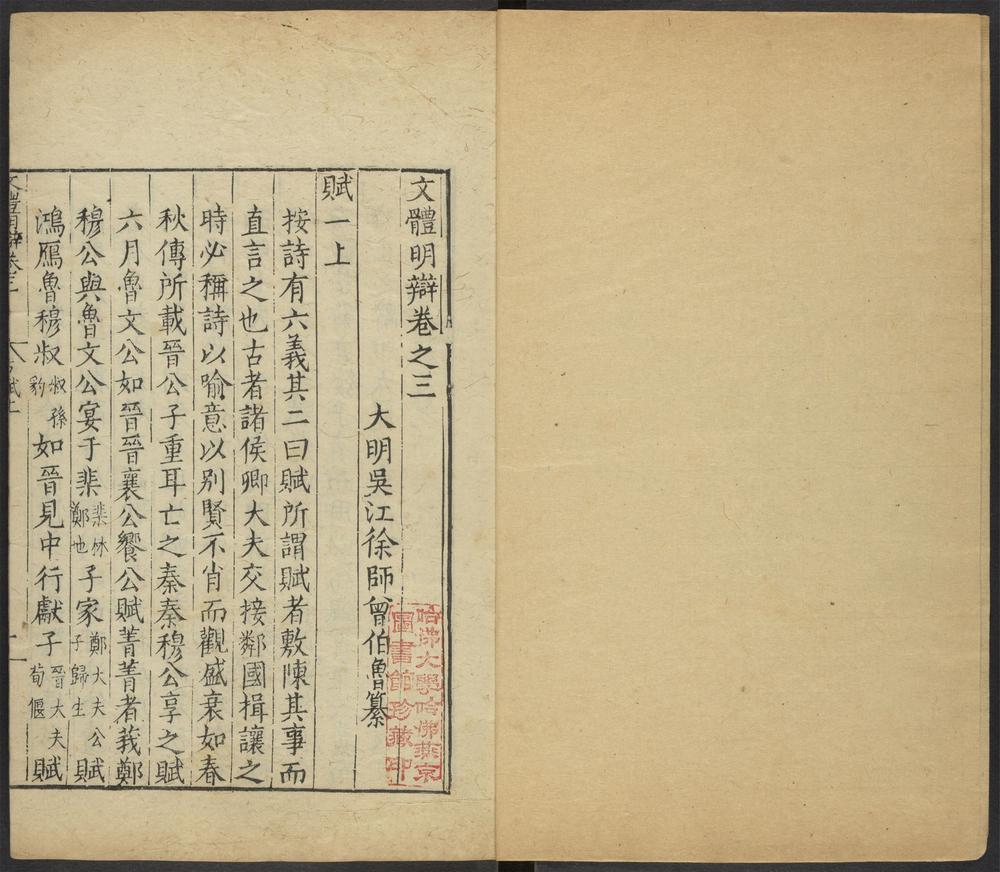 文體明辯卷之三
大明吳江徐師曾伯魯纂
賦一上
按詩有六義其二曰賦所謂賦者敷陳其事而
直言之也古者諸侯卿大夫交接鄰國揖讓之
時必稱詩以喻意以別賢不肖而觀盛衰如春
秋傳所載晉公子重耳亡之秦秦穆公享之賦
六月魯文公如晉晉襄公饗公賦菁菁者莪鄭
穆公與魯文公宴于棐棐林鄭也子家鄭大夫公子歸生賦
鴻鴈魯穆叔叔孫豹如晉見中行獻子晉大夫荀偃賦
文體明辯卷三
哈佛大學哈佛燕京
圖書館珍藏印